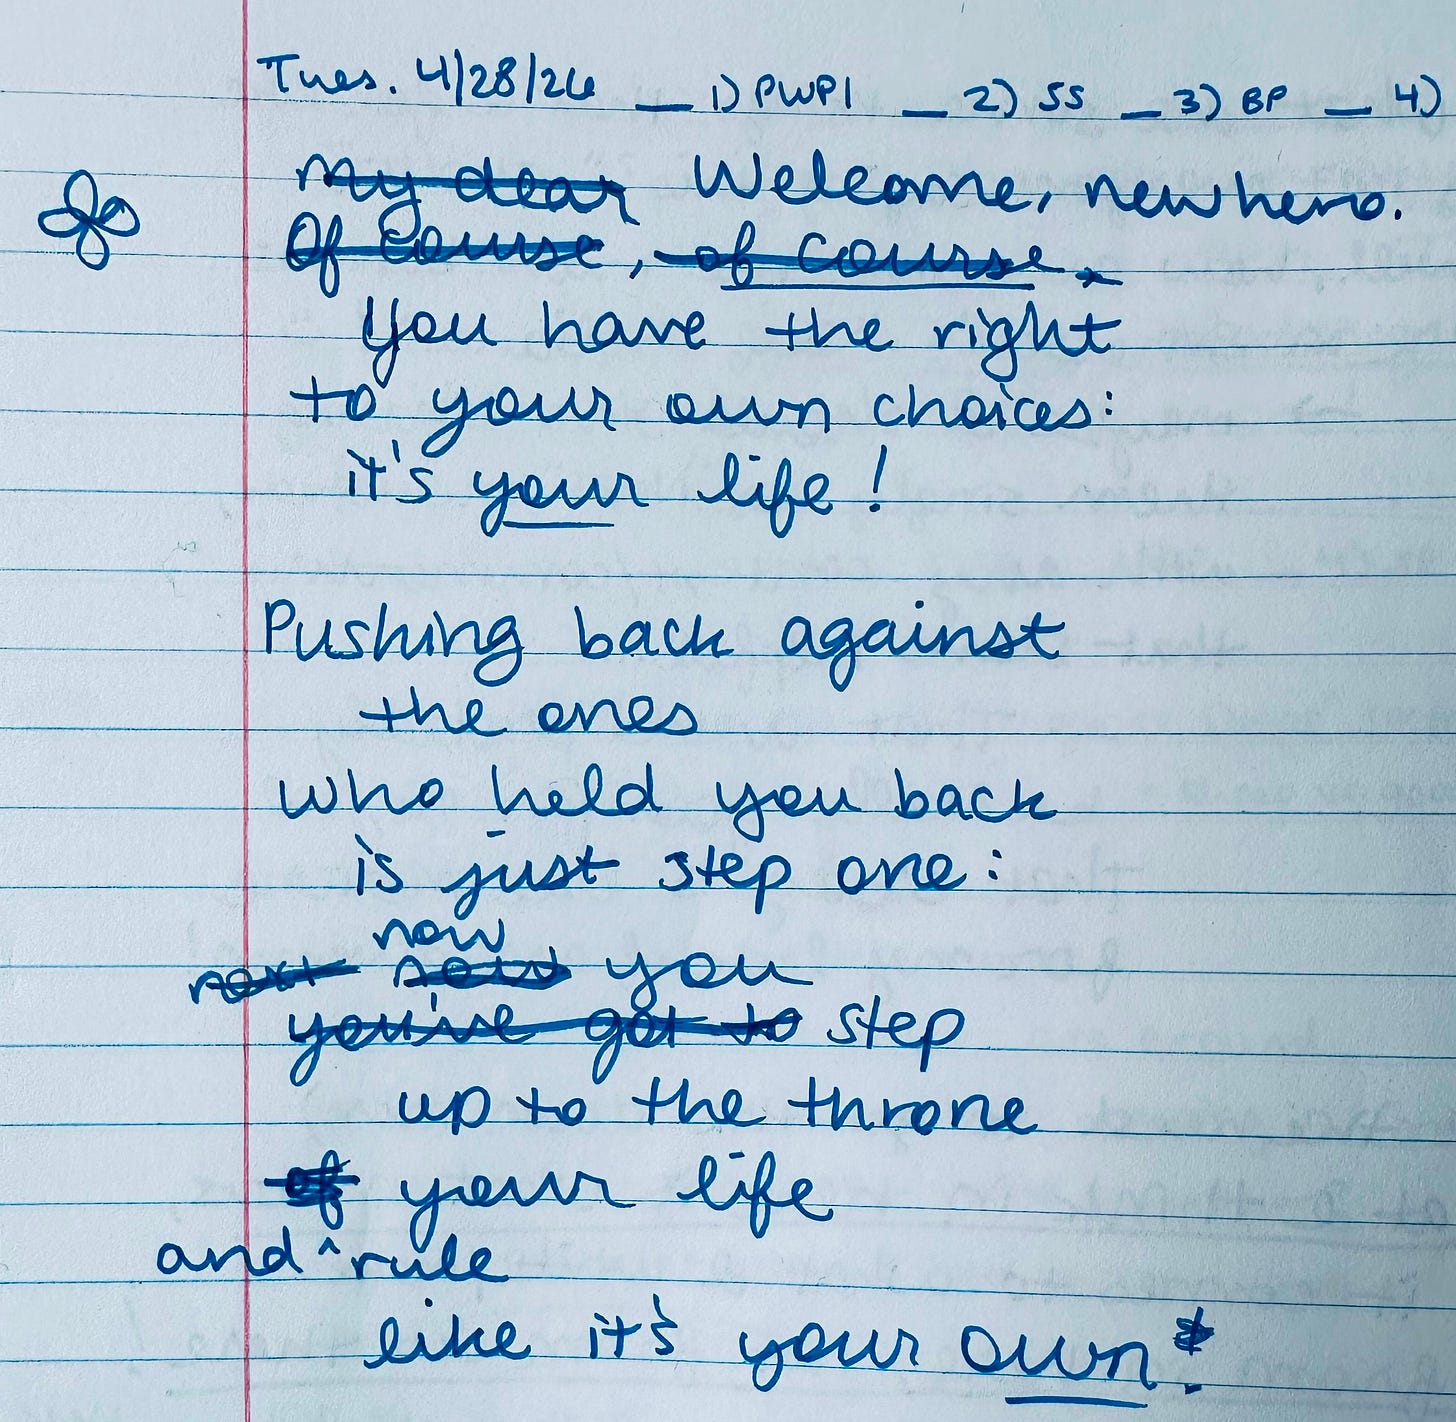 Tues. 4/28/26 _ 1) PWP1 _ 2) SS _ 3) BP _ 4)
My dear Welcome, new hero.
Of course, of course.
You have the right
to your own choices:
it's your life!
Pushing back against
the ones
who held you back
is just step one:
now
next now you
you've got to step
up to the throne
of your life
and ^ rule
like it's your own!